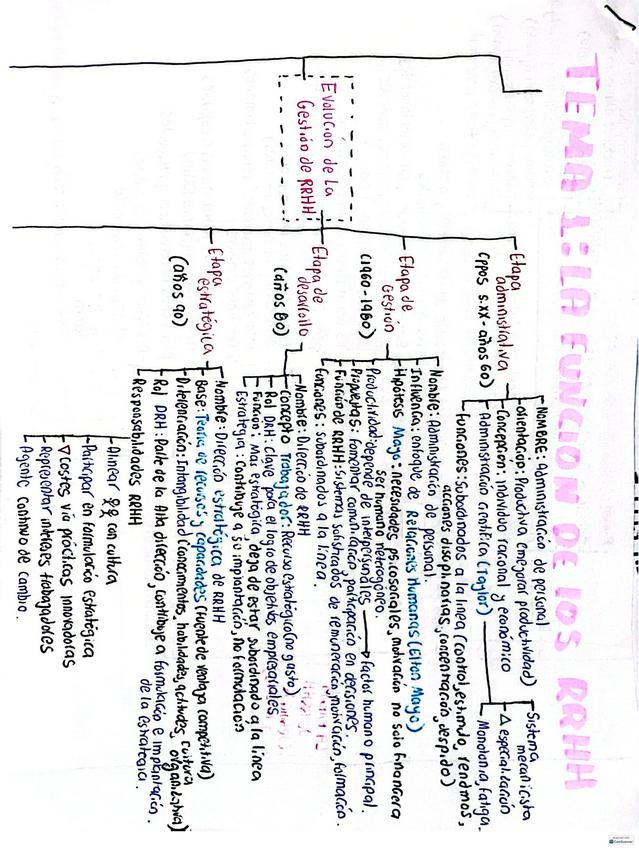 TEMA 1: LA FUNCIÓN DE LOS RRHH
Evolución de La
Gestión de RRHH
Etapa
administrativa
(ppos s.XX - años 60)
NOMBRE: Administración de personal
orientación: Productiva (mejorar productividad)
Concepción: individuo racional y económico
Administración científica (Taylor)
Sistema
mecanicista
△ especialización
Monotonía, fatiga.
Funciones: subordinados a la línea (control, estímulo, rendmos,
acciones disciplinarias, concentración, despido)
Etapa de
Gestión
(1960-1980)
Nombre: Administración de personal.
Influencia: enfoque de Relaciones Humanas (Elton Mayo)
Hipótesis Mayo: necesidades psicosociales, motivación no solo financiera
ser humano heterogéneo
Productividad: depende de interpersonales → Factor humano principal.
Propuestas: Fomentar comunicación, participación en decisiones.
Función de RRHH: Sistemas sofisticados de remuneración, motivación, formación.
Funciones: subordinados a la línea.
Etapa de
desarrollo
(años 80)
Nombre: Dirección de RRHH
Concepto Trabajador: Recurso estratégico (no gasto)
Rol DRH: clave para el logro de objetivos empresariales
Función: Más estratégica, deja de estar subordinado a la línea
Estrategia: Contribuye a su implantación, no formulación
Etapa
estratégica
(años 90)
Nombre: Dirección estratégica de RRHH
Base: Teoría de recursos y capacidades (Fuente de ventaja competitiva)
Diferenciación: Intangibilidad (conocimientos, habilidades, actitudes, cultura
organizativa)
Rol DRH: Parte de la Alta dirección, contribuye a formulación e implantación
de la estrategia.
Responsabilidades RRHH
Alinear con cultura
Participar en formulación estratégica
▽ costes vía prácticas innovadoras
Representar intereses trabajadores
Agente continuo de cambio.
CamScanner